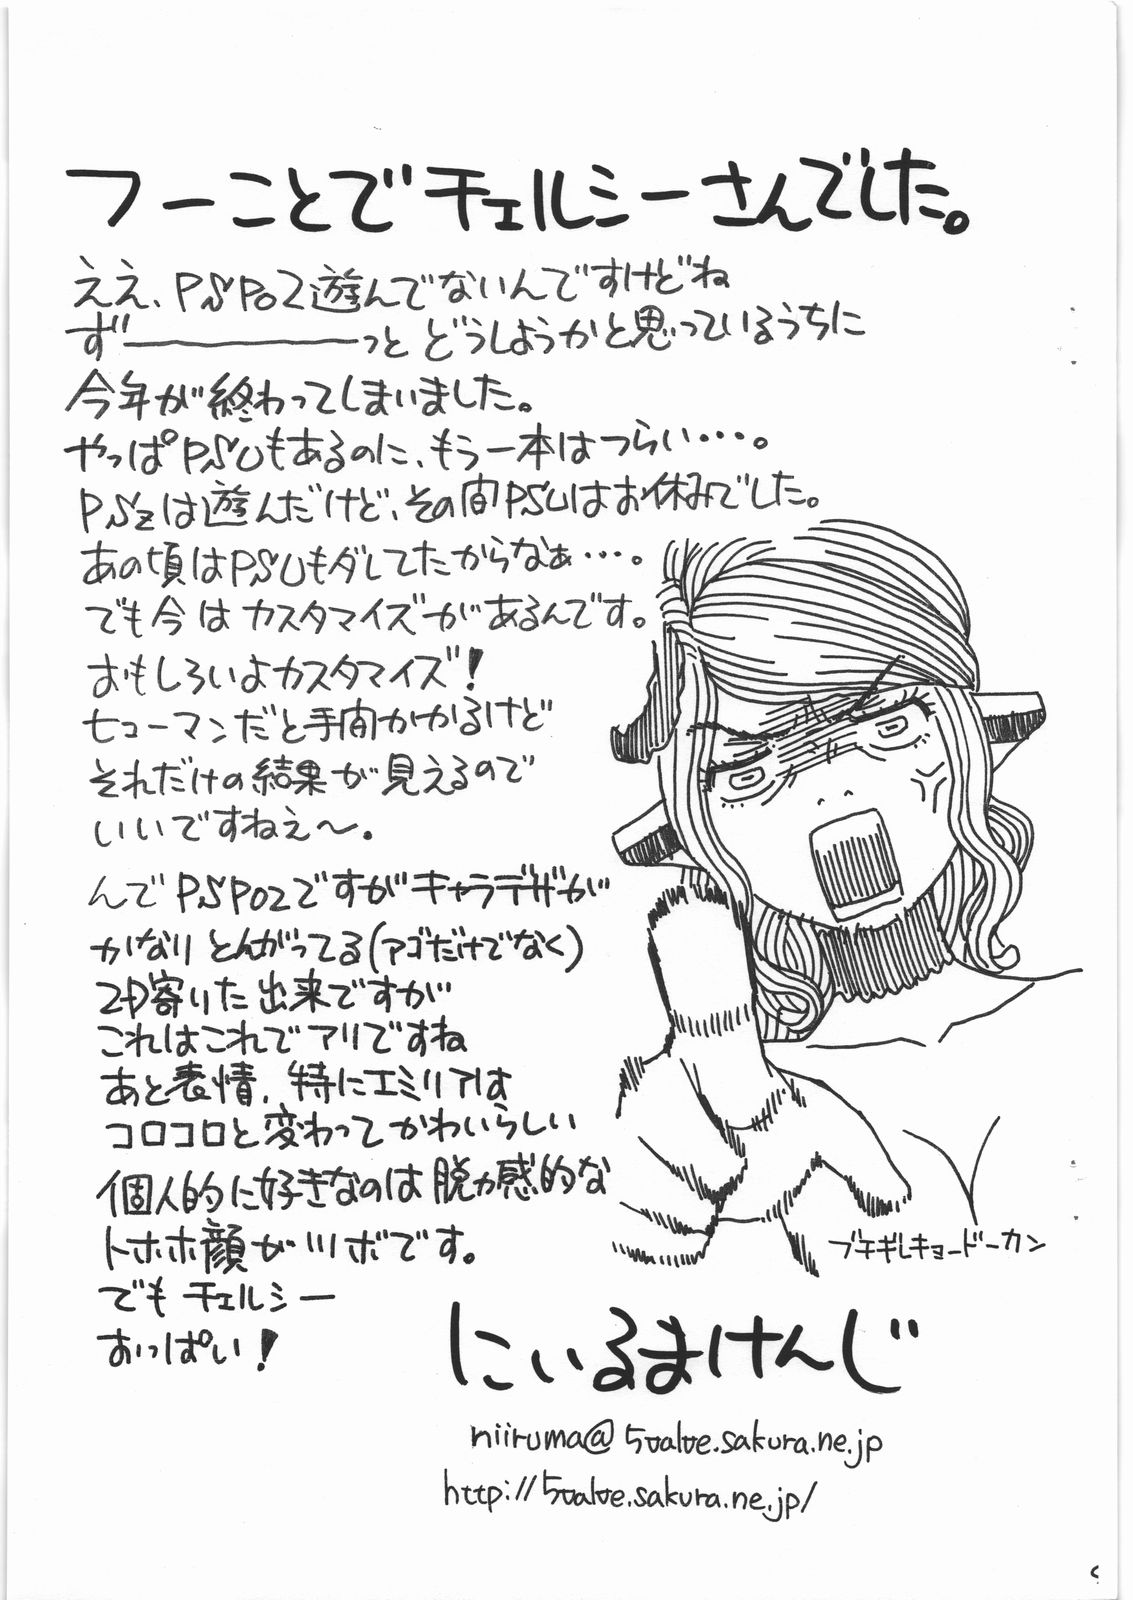 フーことでチェルシーさんでした。
ええ、PSPo2遊んでないんですけどね
ず――――っと どうしようかと思っているうちに
今年が終わってしまいました。
やっぱPSUもあるのに、もう一本はつらい・・・。
PSZは遊んだけど、その間PSUはお休みでした。
あの頃はPSUもダレてたからなぁ・・・。
でも今は カスタマイズがあるんです。
おもしろいよカスタマイズ!
ヒューマンだと手間かかるけど
それだけの結果が見えるので
いいですねぇ〜。
んで PSPo2ですがキャラデザが
かなり とんがってる(アゴだけでなく)
2D寄りた出来ですが
これはこれでアリですね
あと表情、特にエミリアは
コロコロと変わって かわいらしい
個人的に好きなのは 脱力感的な
トホホ顔がツボです。
でも チェルシー
おっぱい!
ブチギレキョードーカン
にいるまけんじ
niiruma@5valve.sakura.ne.jp
http://5valve.sakura.ne.jp/